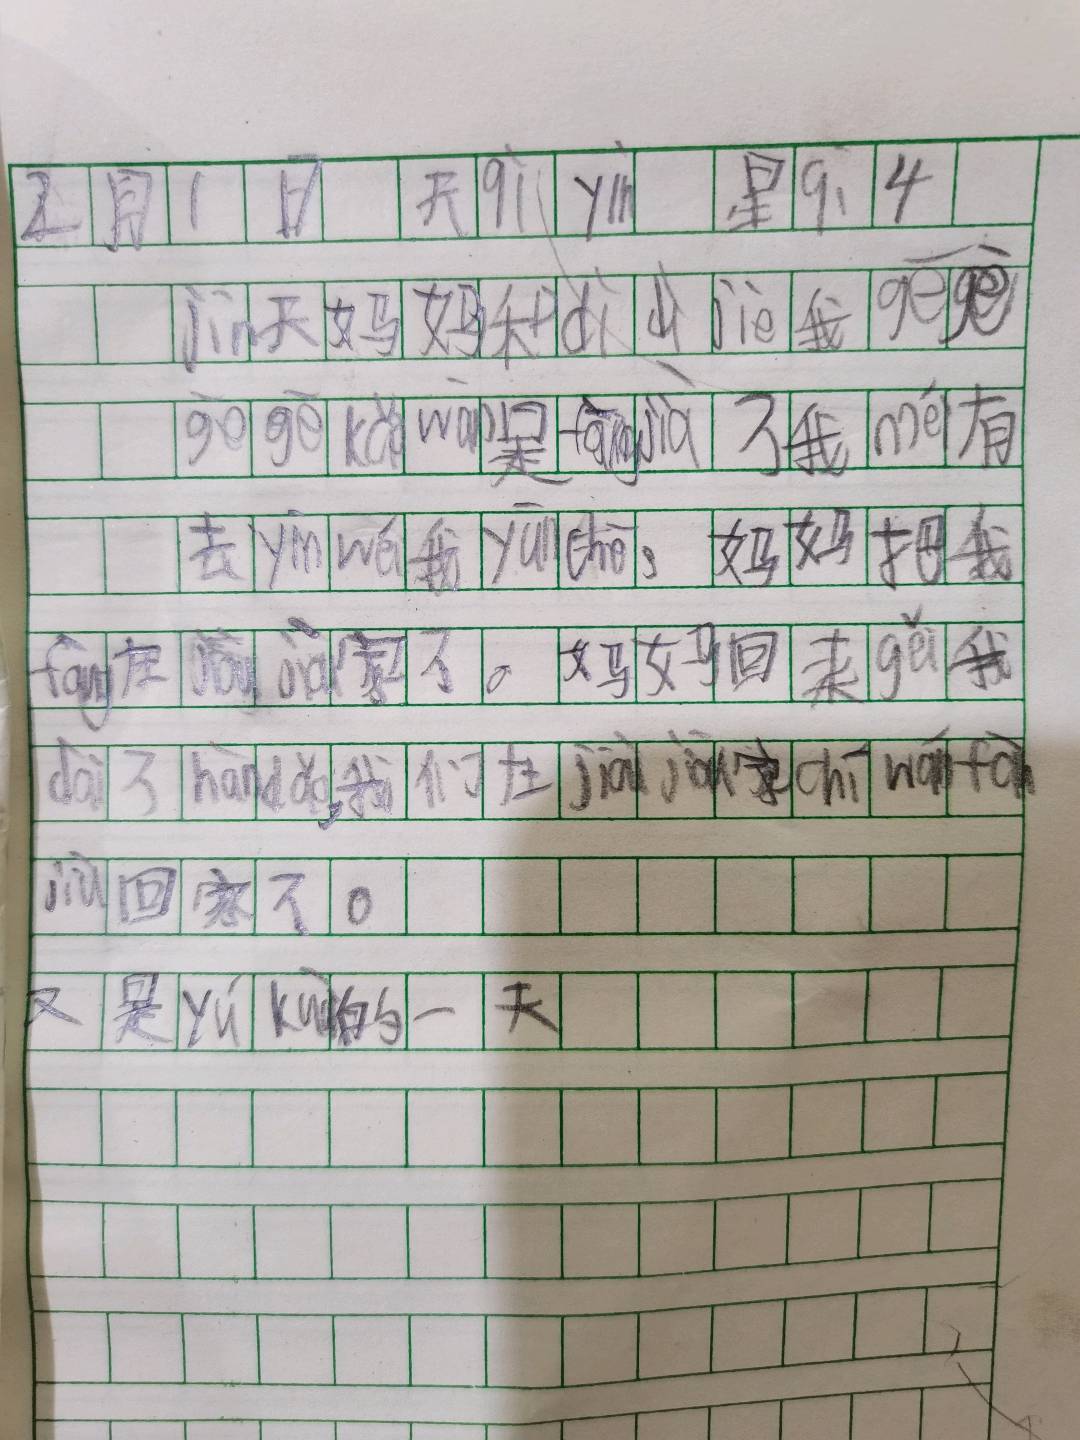 2月1日 天qì yīn 星qī 4
jīn天妈妈和dì dì jiē我gē gē
gē gē kǎo wán是fàng jià了我méi有
去yīn wéi我yūn chē。妈妈把我
fàng在jiù jiu家了。妈妈回来gěi我
dài了hàn dǎo,我们在jiù jiu家chī wán fàn
jiù回家了。
又是yú kuài的一天